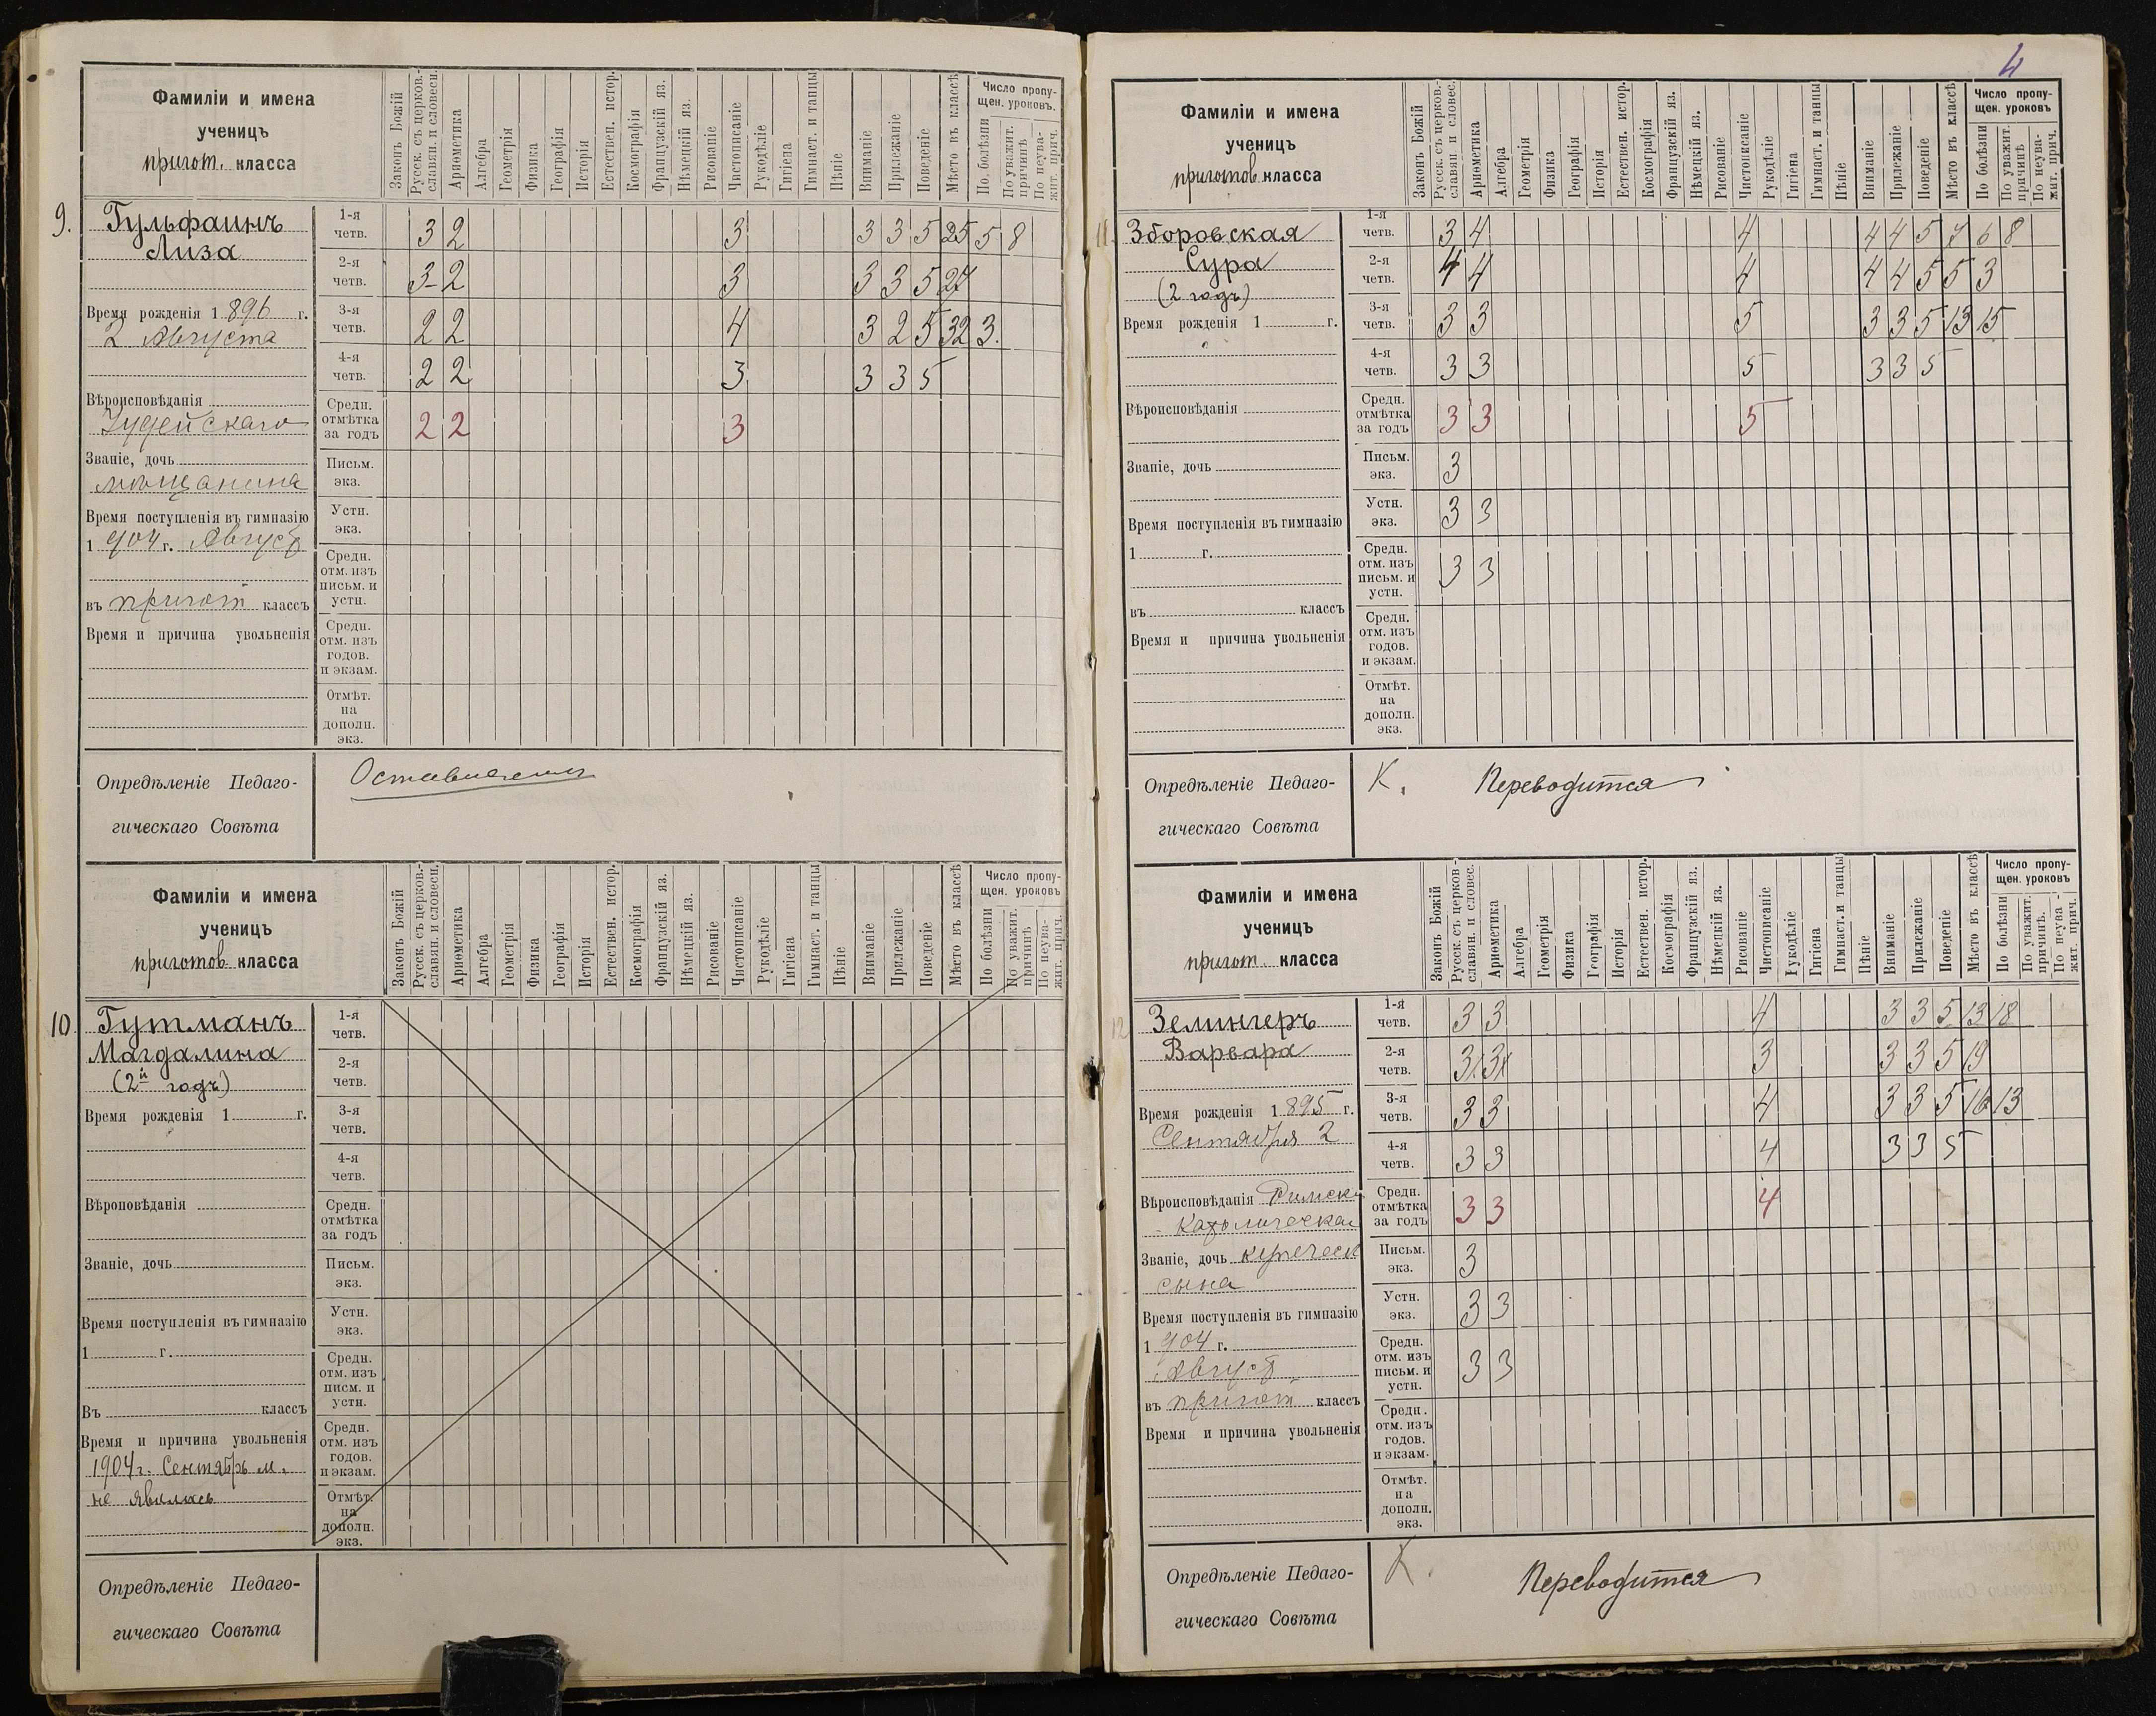 4
Фамиліи и имена
ученицъ
пригот. класса
Законъ Божій
Русск. съ церков.-
славян. и словесн.
Ариѳметика
Алгебра
Геометрія
Физика
Географія
Исторія
Естествен. истор.
Космографія
Французскій яз.
Нѣмецкій яз.
Рисованіе
Чистописаніе
Рукодѣліе
Гигіена
Гимнаст. и танцы
Пѣніе
Вниманіе
Прилежаніе
Поведеніе
Мѣсто въ классѣ
Число пропу-
щен. уроковъ.
По болѣзни
По уважит.
причинѣ
По неува-
жит. прич.
9.
Гульфаинъ
Лиза
Время рожденія 1896 г.
2 Августа
Вѣроисповѣданія
Іудейскаго
Званіе, дочь
мѣщанина
Время поступленія въ гимназію
1904 г. Август
въ пригот классъ
Время и причина увольненія
1-я четв. 3 2 3 3 3 5 25 5 8
2-я четв. 3- 2 3 3 3 5 27
3-я четв. 2 2 4 3 2 5 32 3.
4-я четв. 2 2 3 3 3 5
Средн. отмѣтка за годъ 2 2 3
Письм. экз.
Устн. экз.
Средн. отм. изъ письм. и устн.
Средн. отм. изъ годов. и экзам.
Отмѣт. на дополн. экз.
Опредѣленіе Педаго-
гическаго Совѣта
Фамиліи и имена
ученицъ
приготов. класса
Законъ Божій
Русск. съ церков.-
славян. и словесн.
Ариѳметика
Алгебра
Геометрія
Физика
Географія
Исторія
Естествен. истор.
Космографія
Французскій яз.
Нѣмецкій яз.
Рисованіе
Чистописаніе
Рукодѣліе
Гигіена
Гимнаст. и танцы
Пѣніе
Вниманіе
Прилежаніе
Поведеніе
Мѣсто въ классѣ
Число пропу-
щен. уроковъ
По болѣзни
По уважит.
причинѣ
По неува-
жит. прич.
10.
Гутманъ
Магдалина
(2й годъ)
Время рожденія 1 г.
Вѣроповѣданія
Званіе, дочь
Время поступленія въ гимназію
1 г.
Въ классъ
Время и причина увольненія
1904 г. Сентябрь м.
не явилась
1-я четв.
2-я четв.
3-я четв.
4-я четв.
Средн. отмѣтка за годъ
Письм. экз.
Устн. экз.
Средн. отм. изъ писм. и устн.
Средн. отм. изъ годов. и экзам.
Отмѣт. на дополн. экз.
Опредѣленіе Педаго-
гическаго Совѣта
Фамиліи и имена
ученицъ
приготов. класса
Законъ Божій
Русск. съ церков.-
славян и словес.
Ариѳметика
Алгебра
Геометрія
Физика
Географія
Исторія
Естествен. истор.
Космографія
Французскій яз.
Нѣмецкій яз.
Рисованіе
Чистописаніе
Рукодѣліе
Гигіена
Гимнаст. и танцы
Пѣніе
Вниманіе
Прилежаніе
Поведеніе
Мѣсто въ классѣ
Число пропу-
щен. уроковъ
По болѣзни
По уважит.
причинѣ
По неува-
жит. прич.
11.
Зборовская
Сура
(2 годъ)
Время рожденія 1 г.
Вѣроисповѣданія
Званіе, дочь
Время поступленія въ гимназію
1 г.
въ классъ
Время и причина увольненія
1-я четв. 3 4 4 4 4 5 7 6 8
2-я четв. 4 4 4 4 4 5 5 3
3-я четв. 3 3 5 3 3 5 13 15
4-я четв. 3 3 5 3 3 5
Средн. отмѣтка за годъ 3 3 5
Письм. экз. 3
Устн. экз. 3 3
Средн. отм. изъ письм. и устн. 3 3
Средн. отм. изъ годов. и экзам.
Отмѣт. на дополн. экз.
Опредѣленіе Педаго-
гическаго Совѣта
К. Переводится
Фамиліи и имена
ученицъ
пригот. класса
Законъ Божій
Русск. съ церков-
славян. и словес.
Ариѳметика
Алгебра
Геометрія
Физика
Географія
Исторія
Естествен. истор.
Космографія
Французскій яз.
Нѣмецкій яз.
Рисованіе
Чистописаніе
Рукодѣліе
Гигіена
Гимнаст. и танцы
Пѣніе
Вниманіе
Прилежаніе
Поведеніе
Мѣсто въ классѣ
Число пропу-
щен. уроковъ
По болѣзни
По уважит.
причинѣ.
По неува-
жит. прич.
12
Зелингеръ
Варвара
Время рожденія 1895 г.
Сентября 2
Вѣроисповѣданія Римск
Званіе, дочь купеческ
сына
Время поступленія въ гимназію
1904 г.
Август
въ пригот классъ
Время и причина увольненія
1-я четв. 3 3 4 3 3 5 13 18
2-я четв. 3 3 3 3 3 5 19
3-я четв. 3 3 4 3 3 5 16 13
4-я четв. 3 3 4 3 3 5
Средн. отмѣтка за годъ 3 3 4
Письм. экз. 3
Устн. экз. 3 3
Средн. отм. изъ письм. и устн. 3 3
Средн. отм. изъ годов. и экзам.
Отмѣт. на дополн. экз.
Опредѣленіе Педаго-
гическаго Совѣта
К. Переводится